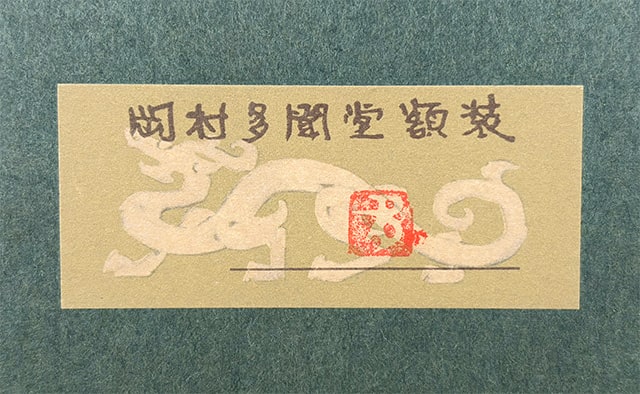 岡村多聞堂額装